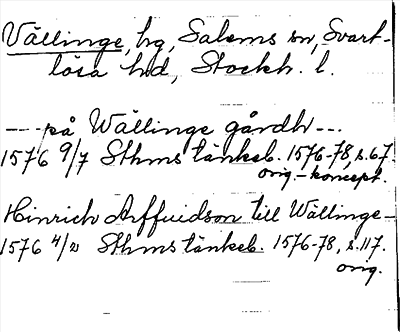 Vällinge, hg, Salems sn, Svart-
lösa hd, Stockh. l.
--- på Wällinge gårdh ---
1576 9/7 Sthms tänkeb. 1576-78, s. 67.
orig. - koncept.
Hinrich Arffuidson till Wällinge -
1576 4/2 Sthms tänkeb. 1576-78, s. 117.
orig.